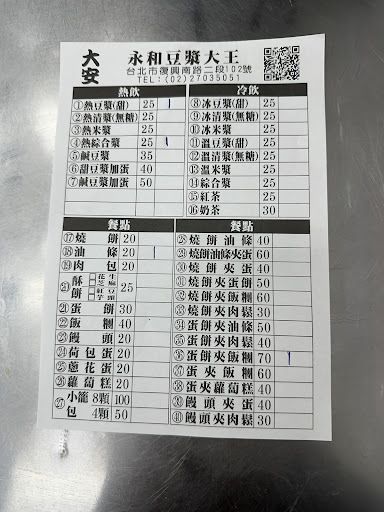 大安
永和豆漿大王
台北市復興南路二段102號
TEL：(02)27035051
熱飲
①熱豆漿(甜) 25
②熱清漿(無糖) 25
③熱米漿 25
④熱綜合漿 25
⑤鹹豆漿 35
⑥甜豆漿加蛋 40
⑦鹹豆漿加蛋 50
冷飲
⑧冰豆漿(甜) 25
⑨冰清漿(無糖) 25
⑩冰米漿 25
⑪溫豆漿(甜) 25
⑫溫清漿(無糖) 25
⑬溫米漿 25
⑭綜合漿 25
⑮紅茶 25
⑯奶茶 30
餐點
⑰燒餅 20
⑱油條 20
⑲肉包 20
⑳酥餅 25
㉑蛋餅 30
㉒飯糰 40
㉓饅頭 20
㉔荷包蛋 20
㉕蔥花蛋 20
㉖蘿蔔糕 20
㉗小籠包 8顆 100
4顆 50
餐點
㉘燒餅油條 40
㉙燒餅油條夾蛋 60
㉚燒餅夾蛋 40
㉛燒餅夾蛋餅 50
㉜燒餅夾飯糰 60
㉝燒餅夾肉鬆 30
㉞蛋餅夾油條 50
㉟蛋餅夾肉鬆 40
㊱蛋餅夾飯糰 70
㊲蛋夾飯糰 60
㊳蛋夾蘿蔔糕 40
饅頭夾蛋 40
饅頭夾肉鬆 30